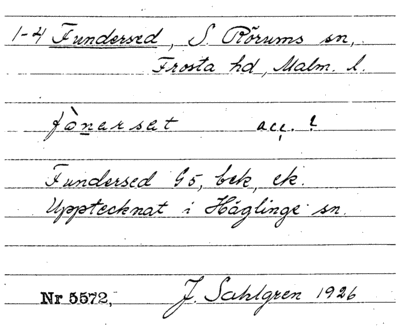 1-4 Fundersed, S. Rörums sn,
Frosta hd, Malm. l.
fànerset acc. ?
Fundersed G5, bek, ek.
Upptecknat i Häglinge sn.
Nr 5572, J. Sahlgren 1926